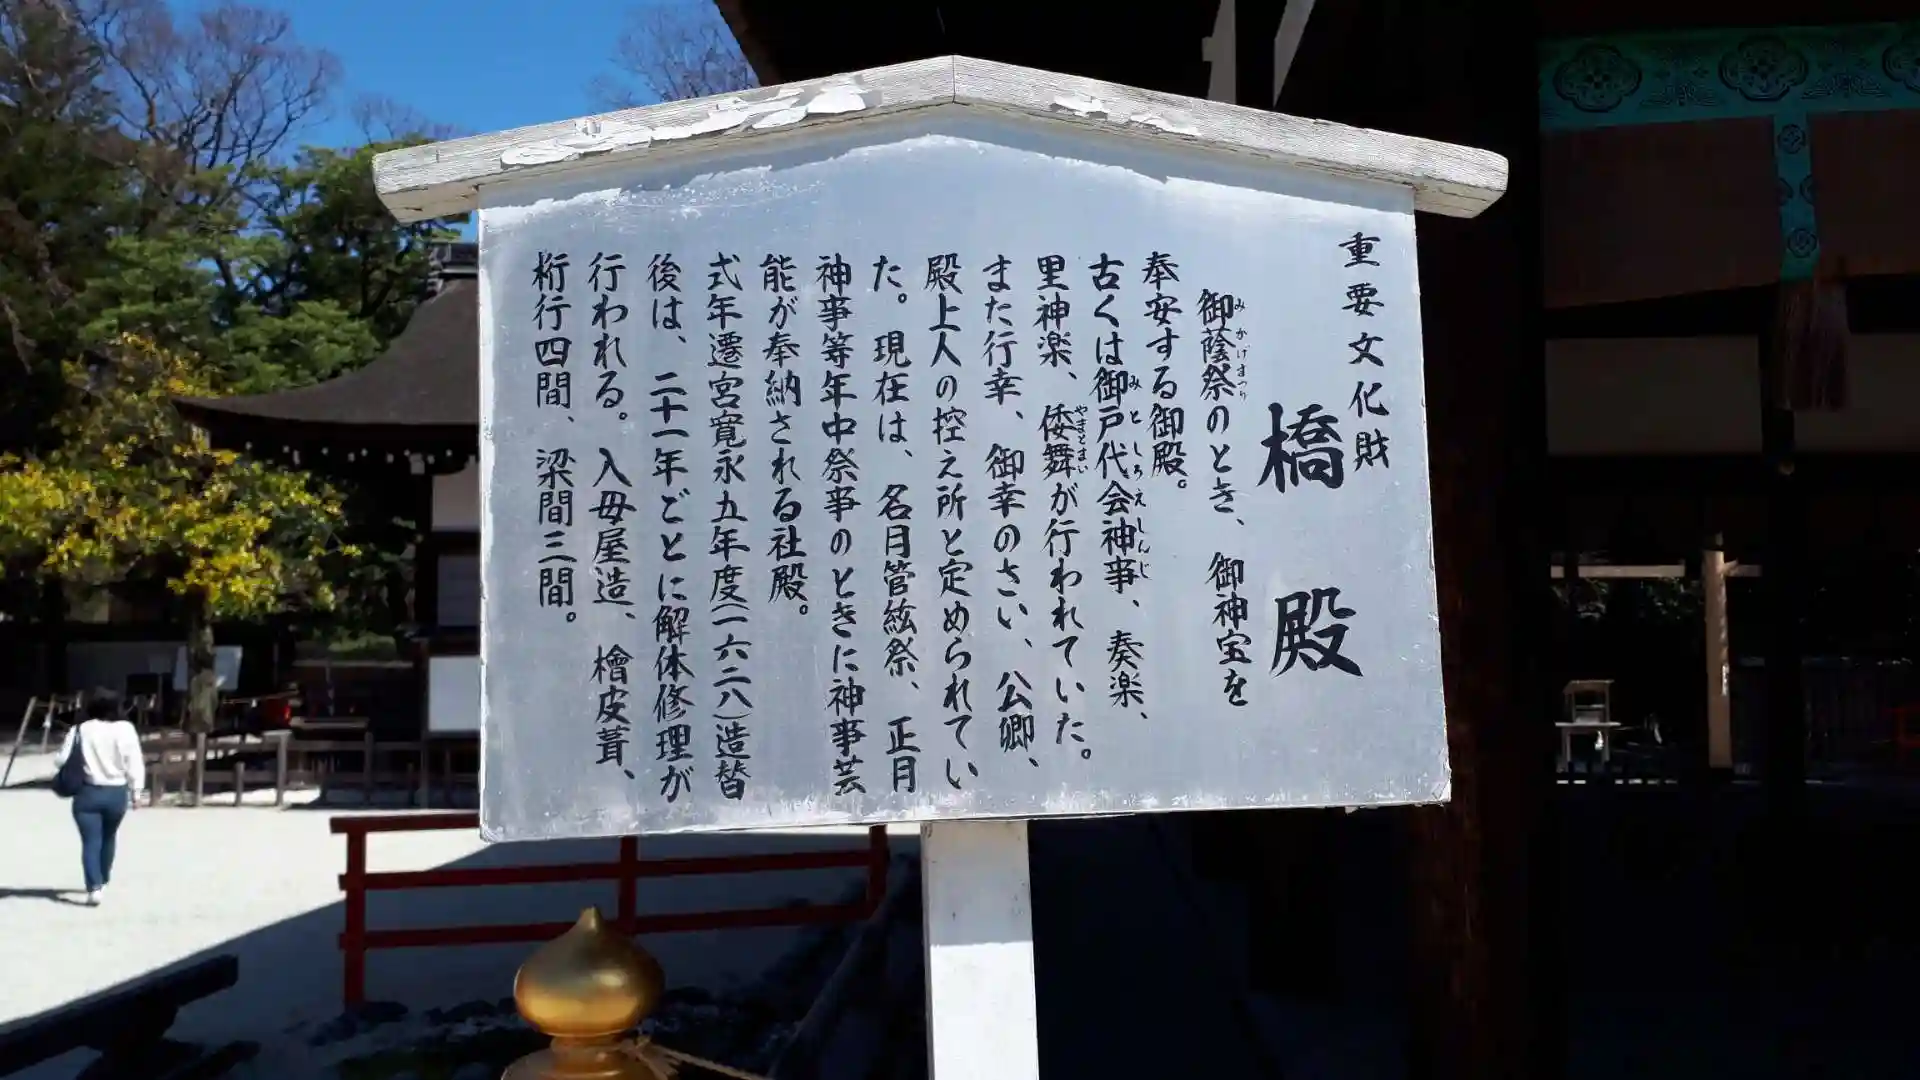 重要文化財
橋殿
御蔭祭のとき、御神宝を
奉安する御殿。
古くは御戸代会神事、奏楽、
里神楽、倭舞が行われていた。
また行幸、御幸のさい、公卿、
殿上人の控え所と定められてい
た。現在は、名月管絃祭、正月
神事等年中祭事のときに神事芸
能が奉納される社殿。
式年遷宮寛永五年度(一六二八)造替
後は、二十一年ごとに解体修理が
行われる。入母屋造、檜皮葺、
桁行四間、梁間三間。
みかげまつり
みとしろえしんじ
やまとまい